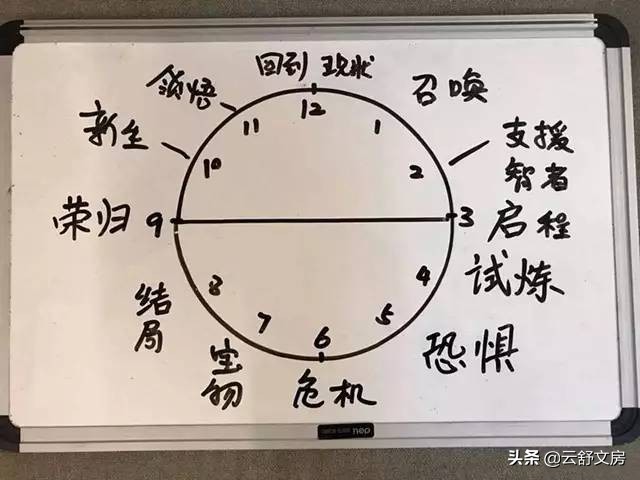 回到 现状
12
召唤
1
支援
智者
2
启程
3
试炼
4
恐惧
5
危机
6
宝物
7
结局
8
荣归
9
新生
10
领悟
11
nep
头条 @云舒文房